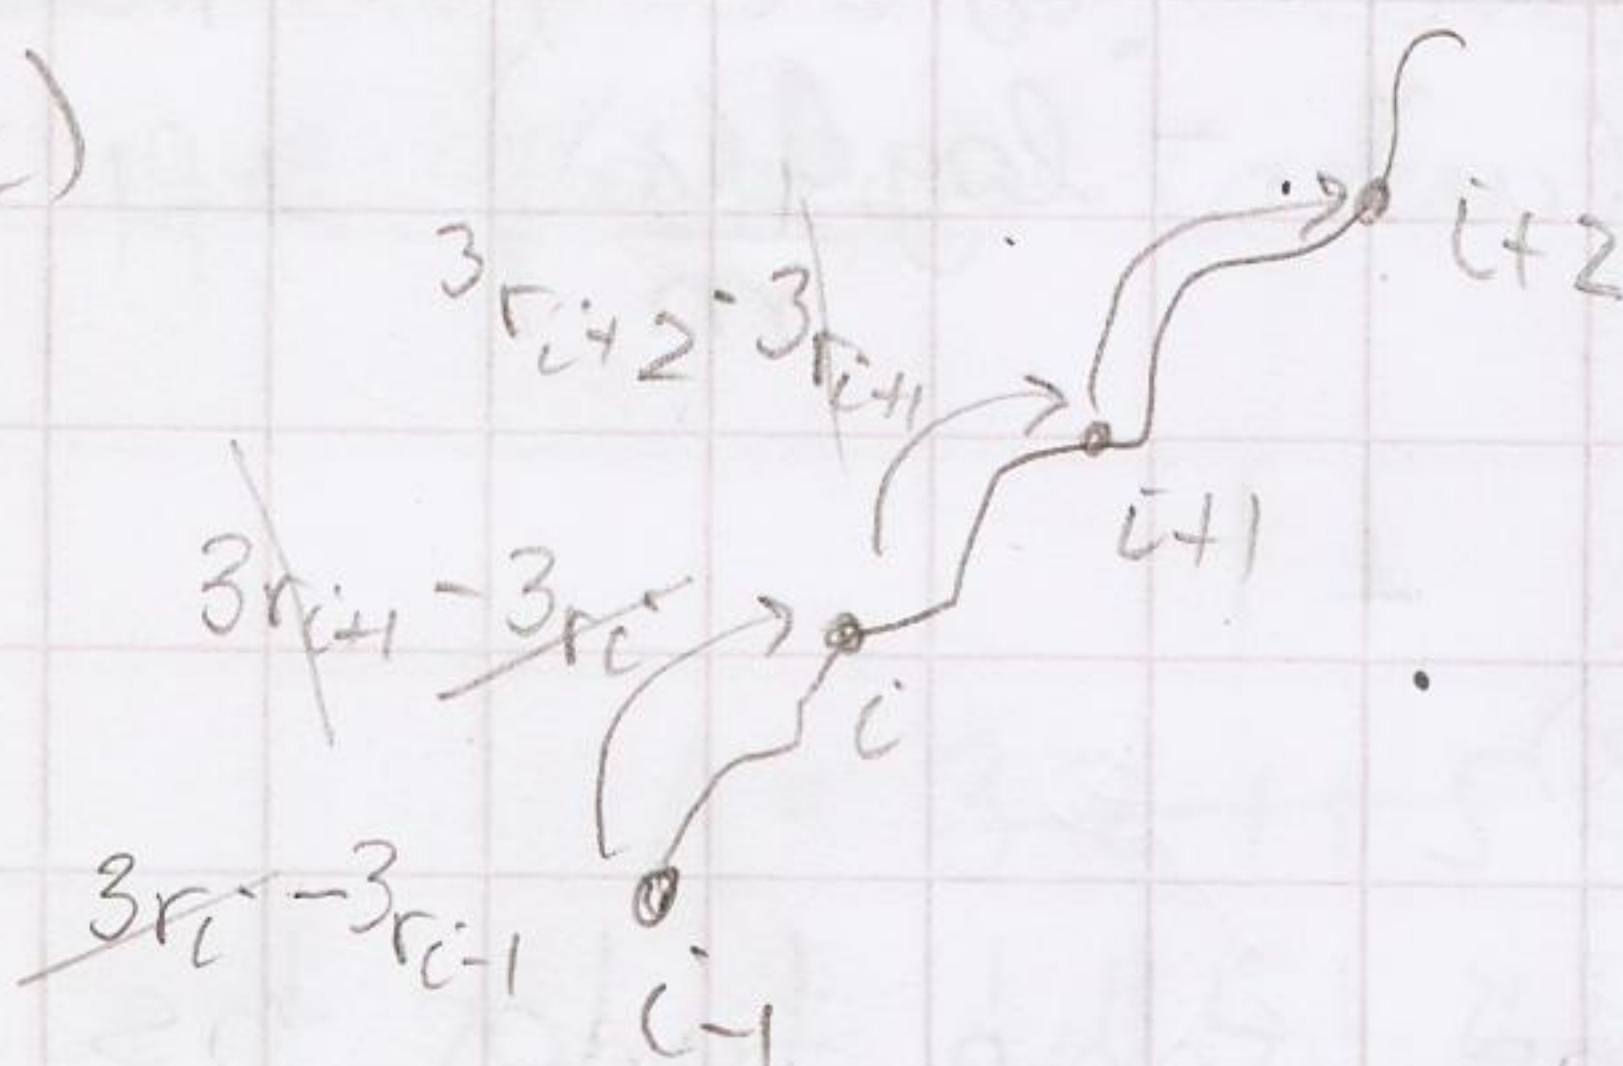 )
i+2
3r_{i+2} - 3r_{i+1}
i+1
3r_{i+1} - 3r_i
i
3r_i - 3r_{i-1}
i-1